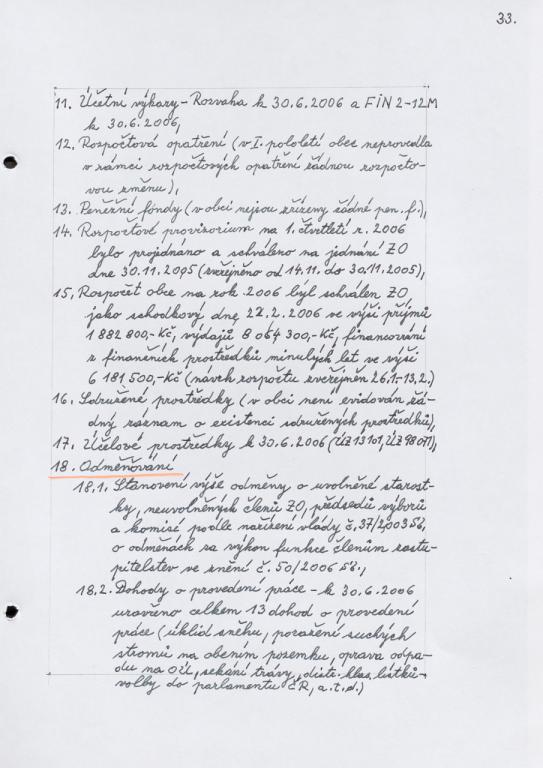 33.
11. Účetní výkazy - Rozvaha k 30.6.2006 a FIN 2-12M
k 30.6.2006,
12. Rozpočtová opatření (v I. pololetí obec neprovedla
v rámci rozpočtových opatření žádnou rozpočto-
vou změnu),
13. Peněžní fondy (v obci nejsou zřízeny žádné pen. f.),
14. Rozpočtové provizorium na 1. čtvrtletí r. 2006
bylo projednáno a schváleno na jednání ZO
dne 30.11.2005 (zveřejněno od 14.11. do 30.11.2005),
15. Rozpočet obce na rok 2006 byl schválen ZO,
jako schodkový dne 22.2.2006 ve výši příjmů
1 882 800,-Kč, výdajů 8 064 300,-Kč, financování
z finančních prostředků minulých let ve výši
6 181 500,-Kč (návrh rozpočtu zveřejněn 26.1.-13.2.)
16. Sdružené prostředky (v obci není evidován žá-
dný záznam o existenci sdružených prostředků),
17. Účelové prostředky k 30.6.2006 (ÚZ 13101, ÚZ 98071),
18. Odměňování
18.1. Stanovení výše odměny o uvolněné starost-
ky, neuvolněných členů ZO, předsedů výborů
a komisí podle nařízení vlády č. 37/2003 Sb.
o odměnách za výkon funkce členům zastu-
pitelstev ve znění č. 50/2006 Sb.,
18.2. Dohody o provedení práce - k 30.6.2006
uzavřeno celkem 13 dohod o provedení
práce (úklid sněhu, poražení suchých
stromů na obecním pozemku, oprava odpa-
du na OÚ, sekání trávy, distr. hlas. lístků-
volby do parlamentu ČR, a.t.d.)